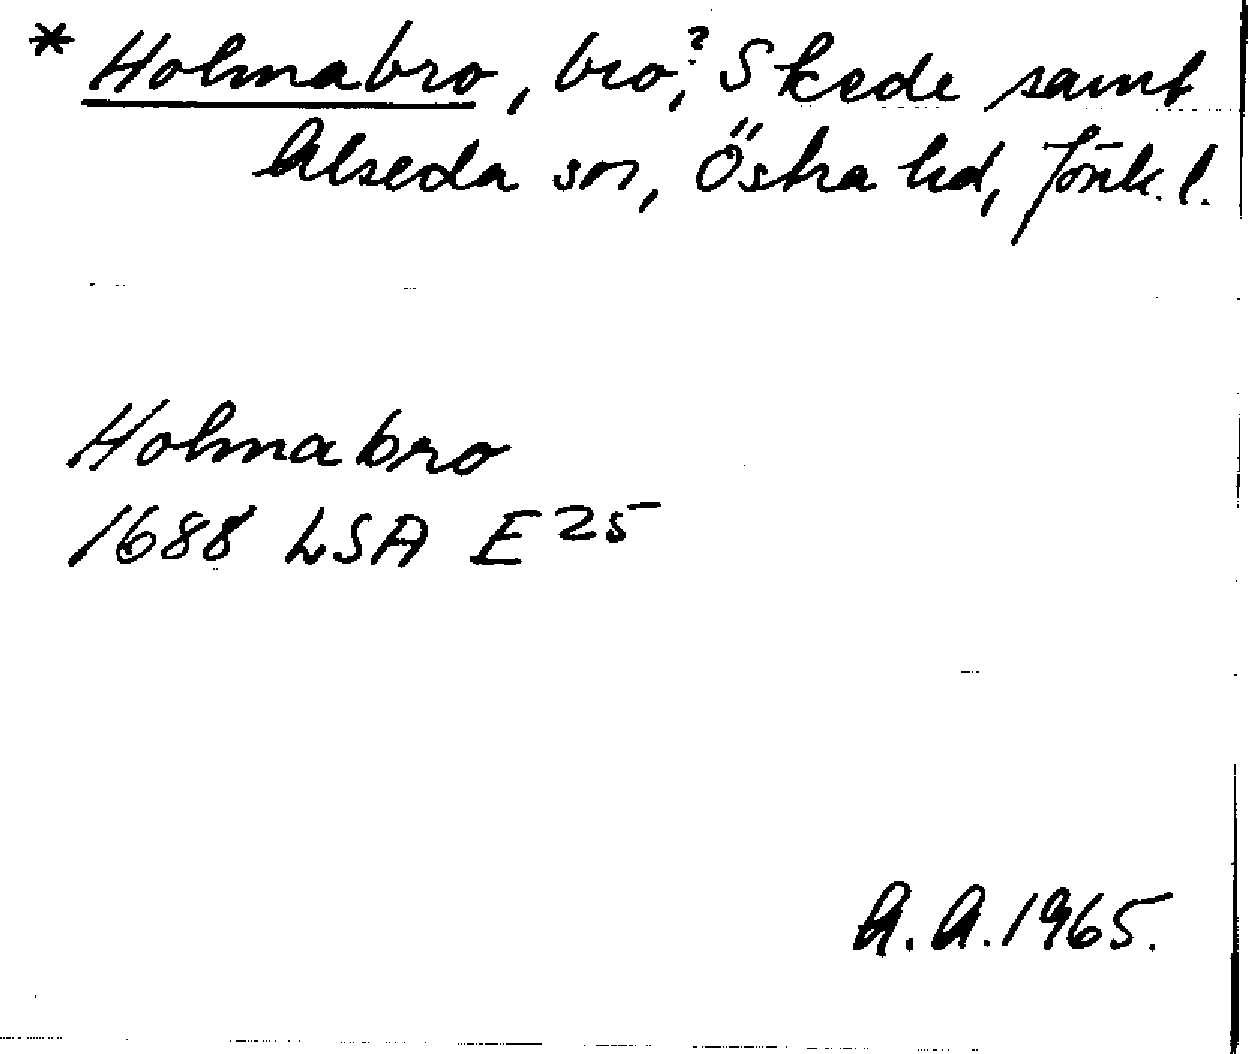 * Holmabro, bro,? Skede samt
Alseda snr, Östra hd, Jönk. l.
Holmabro
1688 LSA E 25
A.A. 1965.